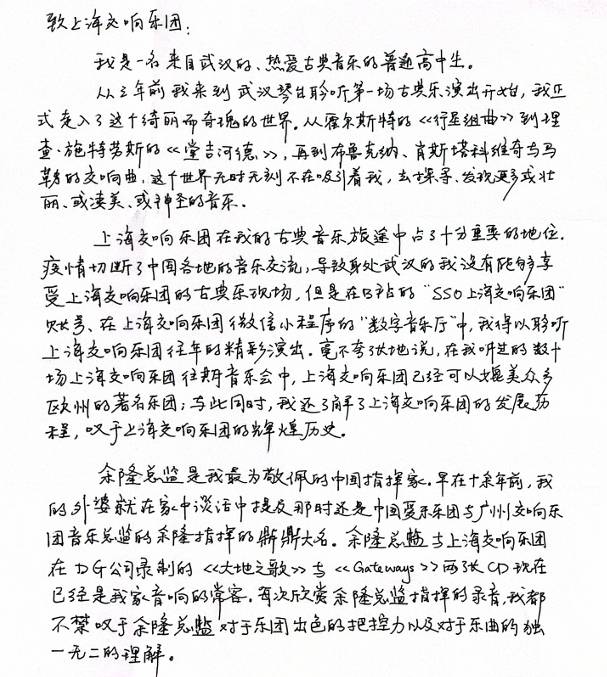 致上海交响乐团:
我是一名来自武汉的、热爱古典音乐的普通高中生。
从三年前我来到武汉琴台聆听第一场古典乐演出开始,我正
式走入了这个绮丽而奇瑰的世界。从霍尔斯特的《行星组曲》到理
查·施特劳斯的《堂吉诃德》,再到布鲁克纳、肖斯塔科维奇与马
勒的交响曲,这个世界无时无刻不在吸引着我,去探寻、发现更多或壮
丽、或凄美、或神圣的音乐。
上海交响乐团在我的古典音乐旅途中占了十分重要的地位。
疫情切断了中国各地的音乐交流,导致身处武汉的我没有能够享
受上海交响乐团的古典乐现场,但是在B站的“SSO上海交响乐团”
账号、在上海交响乐团微信小程序的“数字音乐厅”中,我得以聆听
上海交响乐团往年的精彩演出。毫不夸张地说,在我听过的数十
场上海交响乐团往期音乐会中,上海交响乐团已经可以媲美众多
欧州的著名乐团;与此同时,我还了解了上海交响乐团的发展历
程,叹于上海交响乐团的辉煌历史。
余隆总监是我最为敬佩的中国指挥家。早在十余年前,我
的外婆就在家中谈话中提及那时还是中国爱乐乐团与广州交响乐
团音乐总监的余隆指挥的鼎鼎大名。余隆总监与上海交响乐团
在DG公司录制的《大地之歌》与《Gateways》两张CD现在
已经是我家音响的常客。每次欣赏余隆总监指挥的录音,我都
不禁叹于余隆总监对于乐团出色的把控力以及对于乐曲的独
一无二的理解。